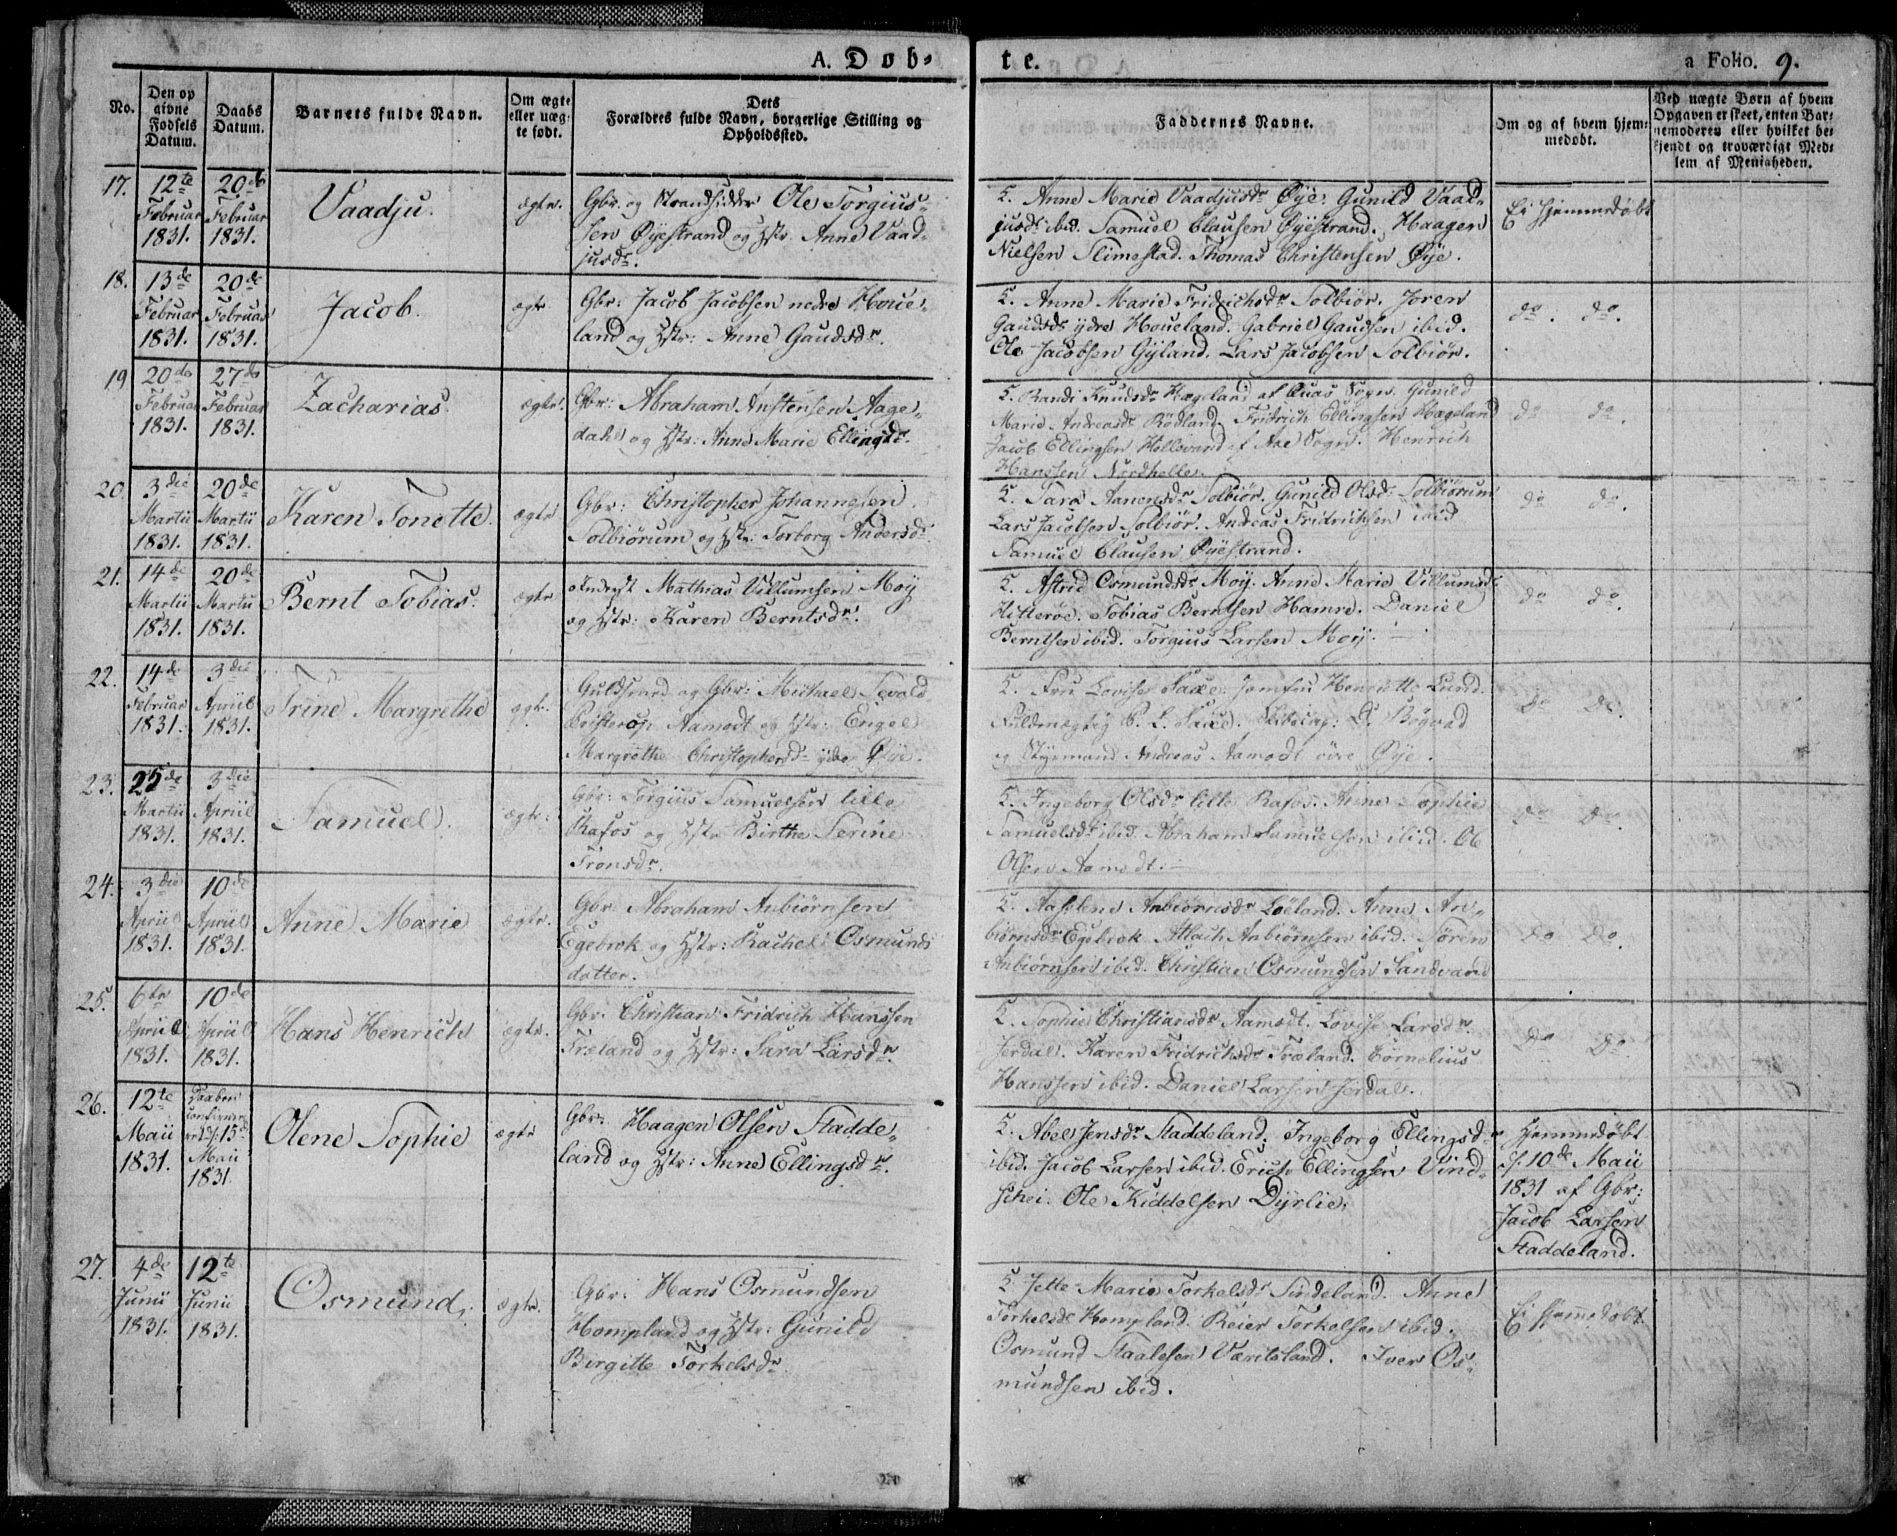 A. Døb-
te.
a Folio. 9.
No.
Den op
givne
Fødsels
Datum.
Daabs
Datum.
Barnets fulde Navn.
Om ægte
eller uæg-
te født.
Dets
Forældres fulde Navn, borgerlige Stilling og
Opholdssted.
Faddernes Navne.
Om og af hvem hjem-
medøbt.
Ved uægte Børn af hvem
Opgaven er skeet, enten Bar-
nemoderen eller hvilket be-
kjendt og troværdigt Med-
lem af Menigheden.
17.
12te
Februar
1831.
20de
Februar
1831.
Vaadju.
ægte.
Gbr. og Strandsidder Ole Torgius-
sen Øyestrand og Hstr. Anne Vaad-
jusdr.
K. Anne Marie Vaadjusdr Øye. Gunild Vaad-
jusdr ibid. Samuel Clausen Øyestrand. Haagen
Nielsen Slimestad. Thomas Christensen Øye.
Ei Hjemmedøbt
18.
13de
Februar
1831.
20de
Februar
1831.
Jacob.
ægte
Gbr: Jacob Jacobsen nedre Houe-
land og Hstr: Anne Gaudsdr.
K. Anne Marie Fridrichsdr Solbiør. Joren
Gaudsdr ydre Houeland. Gabriel Gaudsen ibid.
Ole Jacobsen Gyland. Lars Jacobsen Solbiør.
do. do.
19
20de
Februar
1831.
27de
Februar
1831.
Zacharias.
ægte.
Gbr: Abraham Anstensen Aage-
dahl og Hstr: Anne Marie Ellingsdr.
K. Randi Knudsdr Hægeland af Quas Sogn. Gunild
Marie Andreasdr Rødland. Fridrich Ellingsen Hægeland
Jacob Ellingsen Hellevand af Aae Sogn. Henrich
Hanssen Nordhelle.
do do.
20.
3die
Martii
1831.
20de
Martii
1831.
Karen Tonette.
ægte
Gbr: Christopher Johannesen
Solbiørum og Hstr: Torborg Andersdr.
K. Sara Aanensdr Solbiør. Gunild Olsdr Solbiørum
Lars Jacobsen Solbiør. Andreas Fridrichsen ibid
Samuel Clausen Øyestrand.
do do.
21.
14de
Martii
1831.
20de
Martii
1831.
Bernt Tobias.
ægte
Mathias Villumsen Moy
og Hstr: Karen Berntsdr.
K. Astrid Osmundsdr Moy. Anne Marie Villumsdr
Hitterøe. Tobias Berntsen Hamre. Daniel
Berntsen ibid. Torgius Larsen Moy.
do do.
22.
14de
Februar
1831.
3die
April
1831.
Trine Margrethe
ægte.
Guldsmed og Gbr: Michael Sevald
Aamodt og Hstr: Engel
Margrethe Christophersdr ydre Øye.
K. Fru Lovise Saxe. Jomfru Henriette Lund.
Fuldmægtig P. L. Saxe. Skibscap: D. Bøgvad
og Styrmand Andreas Aamodt øvre Øye.
do do.
23.
25de
Martii
1831.
3die
April
1831.
Samuel.
ægte.
Gbr: Torgius Samuelsen lille
Rafos og Hstr Birthe Serine
Tronsdr.
K. Ingeborg Olsdr lille Rafos. Anne Sophie
Samuelsdr ibid. Abraham Samuelsen ibid. Ole
Olsen Aamodt.
do do.
24.
3die
April
1831.
10de
April
1831.
Anne Marie
ægte.
Gbr. Abraham Anbiørnsen
Egebrok og Hstr: Rachel Osmunds
datter.
K. Aaselene Anbiørnsdr Løeland. Anne An-
biørnsdr Egebrok. Atlach Anbiørnsen ibid. Søren
Anbiørnsen ibid. Christian Osmundsen Sandvand
do do.
25.
6te
April
1831.
10de
April
1831.
Hans Henrich
ægte.
Gbr. Christian Fridrich Hanssen
Træland og Hstr: Sara Larsdr.
K. Sophie Christiansdr Aamodt. Lovise Larsdr.
Jerdal. Karen Fridrichsdr Træland. Cornelius
Hanssen ibid. Daniel Larsen Jerdal.
do do
26.
12te
Maii
1831.
Daaben
confirme-
ret d. 15de
Maii
1831
Olene Sophie
ægte
Gbr: Haagen Olsen Stadde-
land og Hstr: Anne Ellingsdr.
K. Abel Jensdr Staddeland. Ingeborg Ellingsdr
ibid. Jacob Larsen ibid. Erich Ellingsen Vind-
schei. Ole Kiddelsen Dyrlie.
Hjemmedøbt
d. 10de Maii
1831 af Gbr:
Jacob Larsen
Staddeland.
27.
4de
Junii
1831.
12te
Junii
1831.
Osmund.
ægte.
Gbr: Hans Osmundsen
Hompland og Hstr: Gunild
Birgitte Torkelsdr.
K. Jette Marie Torkelsdr Sindeland. Anne
Torkelsdr Hompland. Reier Torkelsen ibid.
Osmund Staalesen Væritsland. Iver Os-
mundsen ibid.
Ei Hjemmedøbt